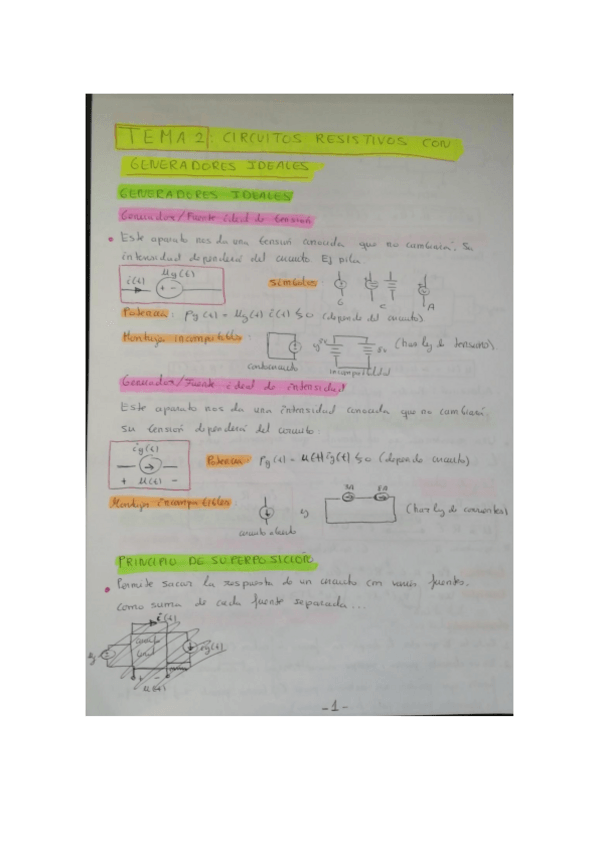 TEMA 2: CIRCUITOS RESISTIVOS CON
GENERADORES IDEALES
GENERADORES IDEALES
Generador/Fuente ideal de tensión
• Este aparato nos da una tensión conocida que no cambiará. Su
intensidad dependerá del circuito. Ej pila.
i(t) ug(t)
+ -
Símbolos:
C A
Potencia: Pg(t) = ug(t) i(t) ≶ 0 (depende del circuito)
Montaje incompatible:
cortocircuito
incompatibilidad
(har ley de tensiones)
Generador/Fuente ideal de intensidad
Este aparato nos da una intensidad conocida que no cambiará.
su tensión dependerá del circuito.
ig(t)
+ u(t) -
Potencia: Pg(t) = u(t) ig(t) ≶ 0 (depende circuito)
Montajes incompatibles
circuito abierto
(har ley de corrientes)
PRINCIPIO DE SUPERPOSICIÓN
• Permite sacar la respuesta de un circuito con varias fuentes.
como suma de cada fuente separada...
i(t)
ig(t)
+ -
u(t)
-1-